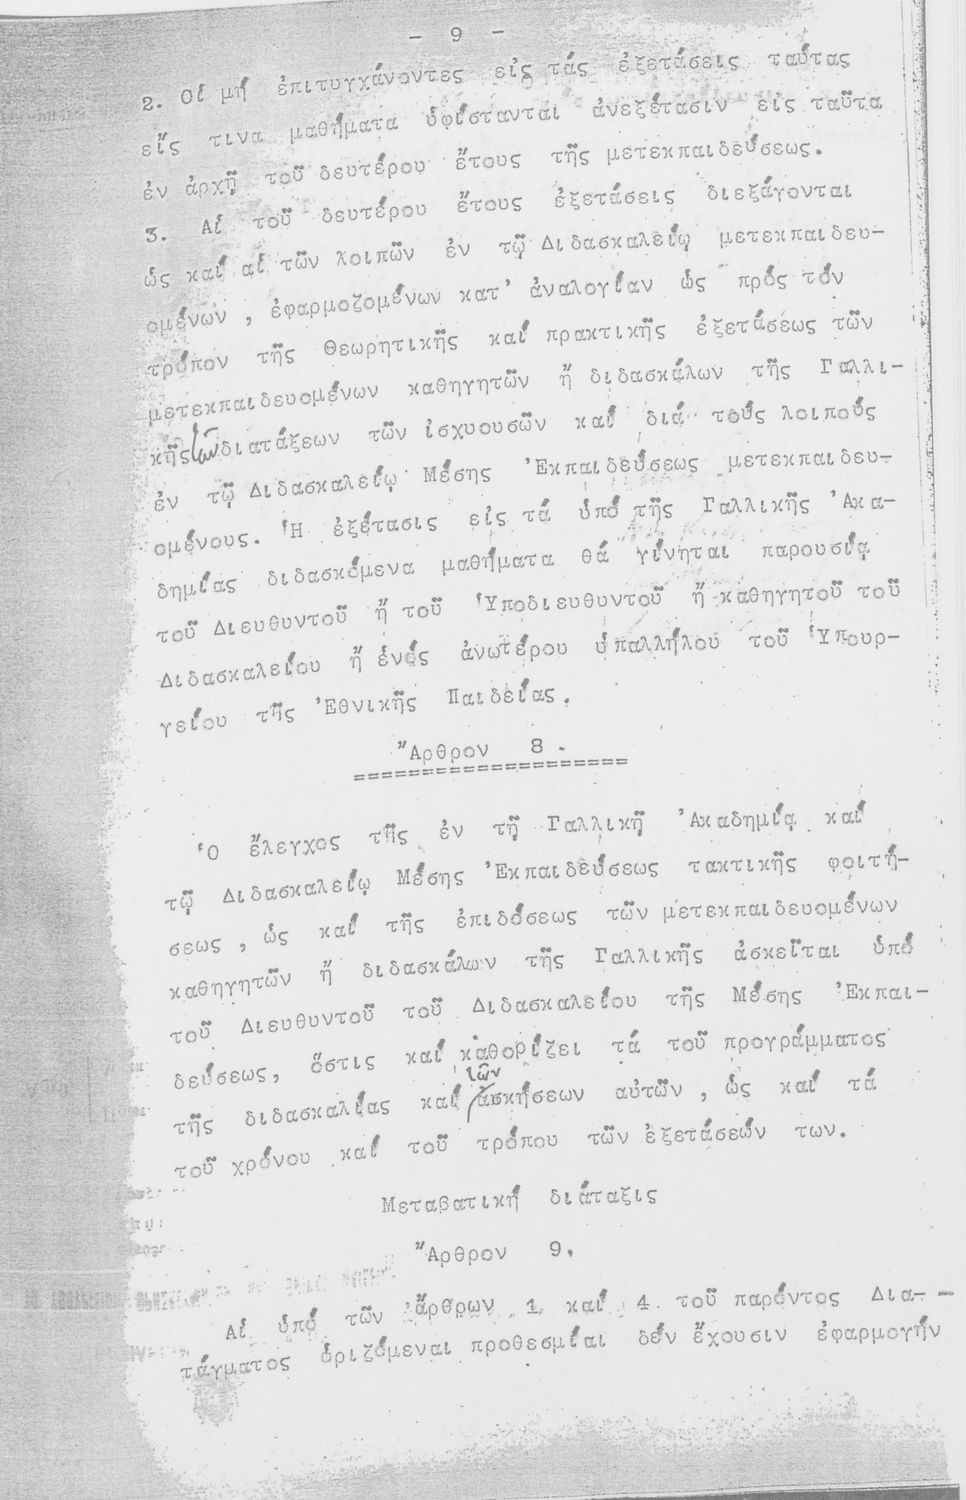 - 9 -
2. Οἱ μή ἐπιτυγχάνοντες εἰς τάς ἐξετάσεις ταύτας
εἴς τινα μαθήματα ὑφίστανται ἀνεξέτασιν εἰς ταῦτα
ἐν ἀρχῇ τοῦ δευτέρου ἔτους τῆς μετεκπαιδεύσεως.
3. Αἱ τοῦ δευτέρου ἔτους ἐξετάσεις διεξάγονται
ὡς καί αἱ τῶν λοιπῶν ἐν τῷ Διδασκαλείῳ μετεκπαιδευ-
ομένων, ἐφαρμοζομένων κατ' ἀναλογίαν ὡς πρός τόν
τρόπον τῆς θεωρητικῆς καί πρακτικῆς ἐξετάσεως τῶν
μετεκπαιδευομένων καθηγητῶν ἤ διδασκάλων τῆς Γαλλι-
κῆς τῶν διατάξεων τῶν ἰσχυουσῶν καί διά τούς λοιπούς
ἐν τῷ Διδασκαλείῳ Μέσης Ἐκπαιδεύσεως μετεκπαιδευ-
ομένους. Ἡ ἐξέτασις εἰς τά ὑπό τῆς Γαλλικῆς Ἀκα-
δημίας διδασκόμενα μαθήματα θά γίνηται παρουσίᾳ
τοῦ Διευθυντοῦ ἤ τοῦ Ὑποδιευθυντοῦ ἤ καθηγητοῦ τοῦ
Διδασκαλείου ἤ ἑνός ἀνωτέρου ὑπαλλήλου τοῦ Ὑπουρ-
γείου τῆς Ἐθνικῆς Παιδείας.
Ἄρθρον 8.
====================
Ὁ ἔλεγχος τῆς ἐν τῇ Γαλλικῇ Ἀκαδημίᾳ καί
τῷ Διδασκαλείῳ Μέσης Ἐκπαιδεύσεως τακτικῆς φοιτή-
σεως, ὡς καί τῆς ἐπιδόσεως τῶν μετεκπαιδευομένων
καθηγητῶν ἤ διδασκάλων τῆς Γαλλικῆς ἀσκεῖται ὑπό
τοῦ Διευθυντοῦ τοῦ Διδασκαλείου τῆς Μέσης Ἐκπαι-
δεύσεως, ὅστις καί καθορίζει τά τοῦ προγράμματος
τῆς διδασκαλίας καί τῶν ἀσκήσεων αὐτῶν, ὡς καί τά
τοῦ χρόνου καί τοῦ τρόπου τῶν ἐξετάσεών των.
Μεταβατική διάταξις
Ἄρθρον 9.
Αἱ ὑπό τῶν ἄρθρων 1 καί 4 τοῦ παρόντος Δια-
τάγματος ὁριζόμεναι προθεσμίαι δέν ἔχουσιν ἐφαρμογήν